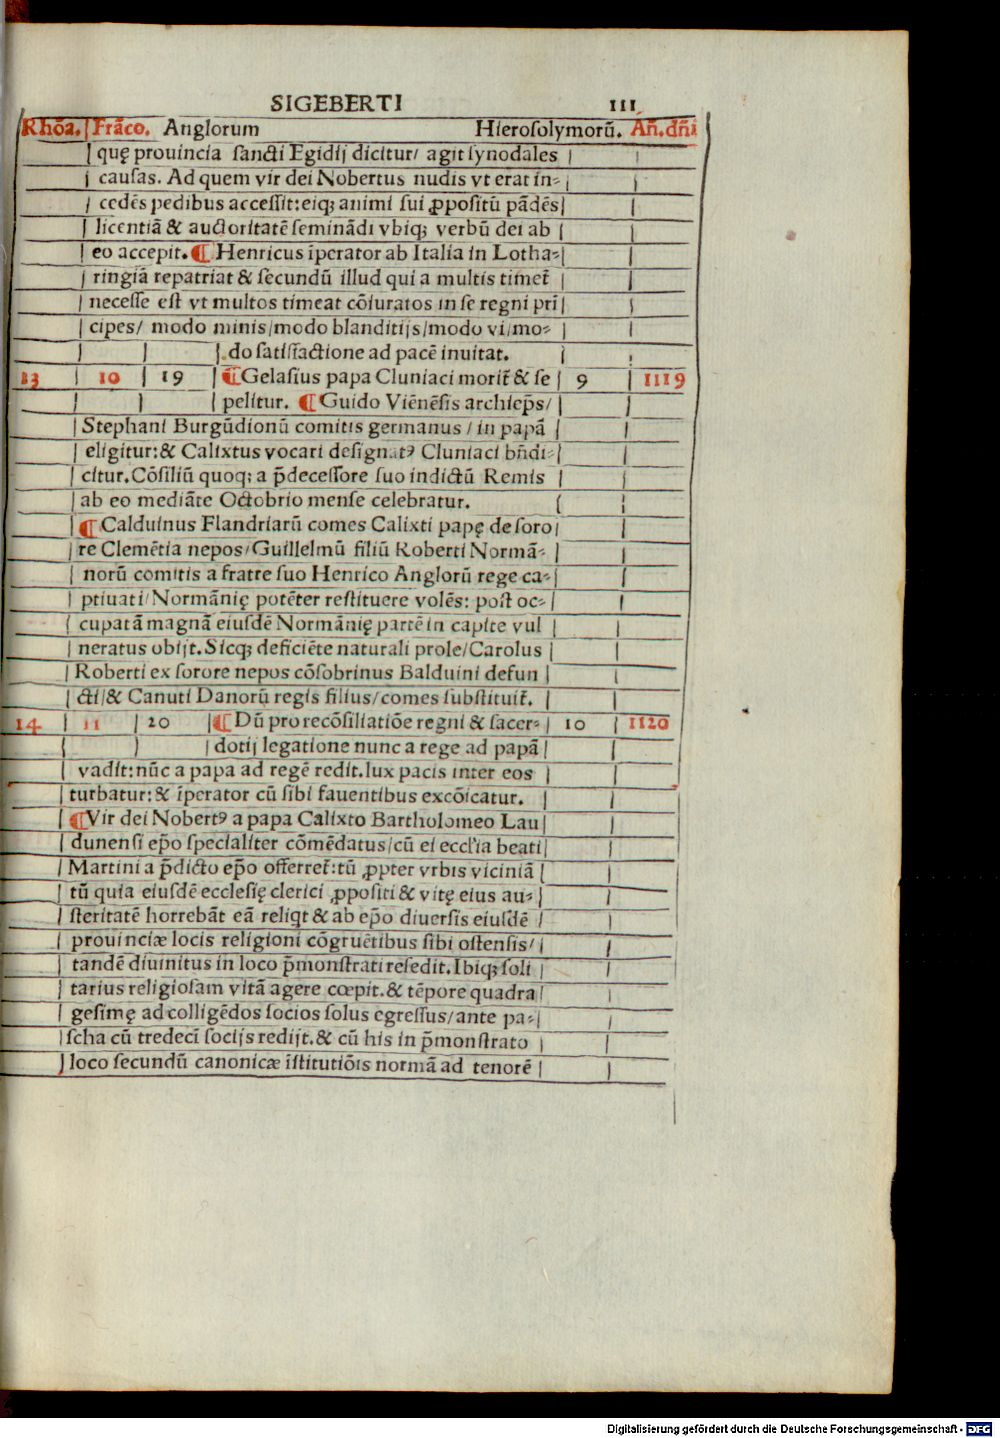 SIGEBERTI III
Rhōa. Frāco. Anglorum Hierosolymorū. Añ.dñi
quę prouincia sancti Egidij dicitur/ agit synodales
causas. Ad quem vir dei Nobertus nudis vt erat in-
cedēs pedibus accessit:eiq; animi sui ꝓpositū pādēs
licentiā & auctoritatē semināди vbiq; verbū dei ab
eo accepit. ¶ Henricus īperator ab Italia in Lotha-
ringiā repatriat & secundū illud qui a multis timet̄
necesse est vt multos timeat cōiuratos in se regni pri̅
cipes/ modo minis/modo blanditijs/modo vi/mo-
do satisfactione ad pacē inuitat.
13 10 19 ¶ Gelasius papa Cluniaci morit̄ & se 9 1119
pelitur. ¶ Guido Viēnēsis archiep̄s/
Stephani Burgūdionū comitis germanus / in papā
eligitur:& Calixtus vocari designatꝰ Cluniaci bn̄di-
citur. Cōsiliū quoq; a p̄decessore suo indictū Remis
ab eo mediāte Octobrio mense celebratur.
¶ Calduinus Flandriarū comes Calixti papę de soro
re Clemētia nepos/Guillelmū filiū Roberti Normā-
norū comitis a fratre suo Henrico Anglorū rege ca-
ptiuati/Normānię potēter restituere volēs: post oc-
cupatā magnā eiusdē Normānię partē in capite vul
neratus obijt. Sicq; deficiēte naturali prole/Carolus
Roberti ex sorore nepos cōsobrinus Balduini defun
cti/& Canuti Danorū regis filius/comes substituit̄.
14 11 20 ¶ Dū pro recōsiliatiōe regni & sacer- 10 1120
dotij legatione nunc a rege ad papā
vadit:nūc a papa ad regē redit.lux pacis inter eos
turbatur:& īperator cū sibi fauentibus excōicatur.
¶ Vir dei Nobertꝰ a papa Calixto Bartholomeo Lau
dunensi ep̄o specialiter cōmēdatus/cū ei eccl'ia beati
Martini a p̄dicto ep̄o offerret̄:tū ꝓpter vrbis viciniā
tū quia eiusdē ecclesię clerici ꝓpositi & vitę eius au-
steritatē horrebāt eā reliqt & ab ep̄o diuersis eiusdē
prouinciæ locis religioni cōgruētibus sibi ostensis/
tandē diuinitus in loco p̄monstrati resedit. Ibiq; soli
tarius religiosam vitā agere cœpit. & tēpore quadra
gesimę ad colligēdos socios solus egressus/ante pa-
scha cū tredeci̅ socijs redijt. & cū his in p̄monstrato
loco secundū canonicæ īstitutiōis normā ad tenorē
Digitalisierung gefördert durch die Deutsche Forschungsgemeinschaft - DFG